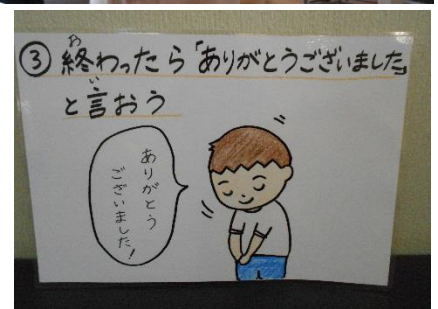 ③ 終わったら「ありがとうございました」
と言おう
ありがとう
ございました!